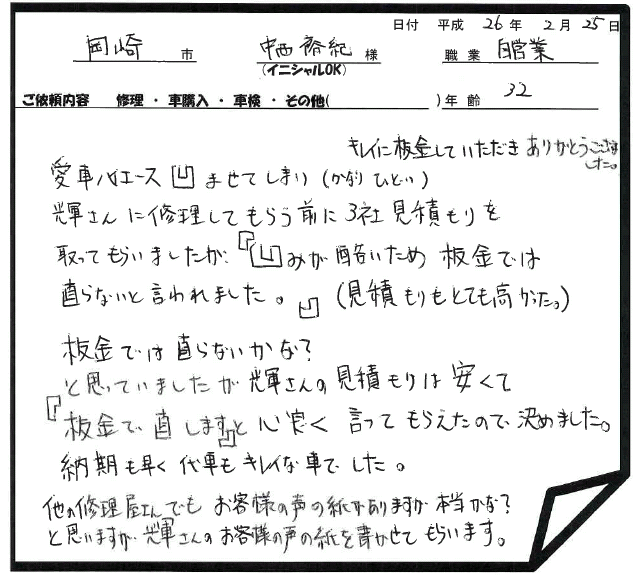 日付 平成 26年 2月 25日
岡崎 市 中西裕紀 様 職業 自営業
(イニシャルOK)
ご依頼内容 修理・車購入・車検・その他( )年齢 32
キレイに板金していただきありがとうござい
ました。
愛車ハイエース凹ませてしまい(かなりひどい)
輝さんに修理してもらう前に3社見積もりを
取ってもらいましたが、『凹みが酷いため板金では
直らないと言われました。』(見積もりもとても高かった。)
板金では直らないかな?
と思っていましたが輝さんの見積もりは安くて
『板金で直します』と心良く言ってもらえたので決めました。
納期も早く代車もキレイな車でした。
他の修理屋さんでもお客様の声の紙がありますが本当かな?
と思いますが輝さんのお客様の声の紙を書かせてもらいます。